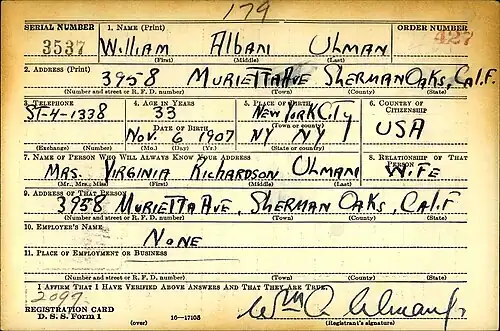 179
SERIAL NUMBER 1. NAME (Print) ORDER NUMBER
3537 WILLIAM ALBAN ULMAN 427
(First) (Middle) (Last)
2. ADDRESS (Print)
3958 MURIETTA AVE SHERMAN OAKS, CALIF.
(Number and street or R. F. D. number) (Town) (County) (State)
3. TELEPHONE 4. AGE IN YEARS 5. PLACE OF BIRTH 6. COUNTRY OF CITIZENSHIP
ST-4-1338 33 NEW YORK CITY
DATE OF BIRTH (Town or county) USA
Nov. 6 1907 NY NY
(Exchange) (Number) (Mo.) (Day) (Yr.) (State or country)
7. NAME OF PERSON WHO WILL ALWAYS KNOW YOUR ADDRESS 8. RELATIONSHIP OF THAT PERSON
MRS. VIRGINIA RICHARDSON ULMAN WIFE
(Mr., Mrs., Miss) (First) (Middle) (Last)
9. ADDRESS OF THAT PERSON
3958 MURIETTA AVE, SHERMAN OAKS, CALIF
(Number and street or R. F. D. number) (Town) (County) (State)
10. EMPLOYER'S NAME
NONE
11. PLACE OF EMPLOYMENT OR BUSINESS
(Number and street or R. F. D. number) (Town) (County) (State)
I AFFIRM THAT I HAVE VERIFIED ABOVE ANSWERS AND THAT THEY ARE TRUE.
2097
REGISTRATION CARD Wm A Ulman Jr.
D. S. S. Form 1 (over) 16—17105 (Registrant's signature)